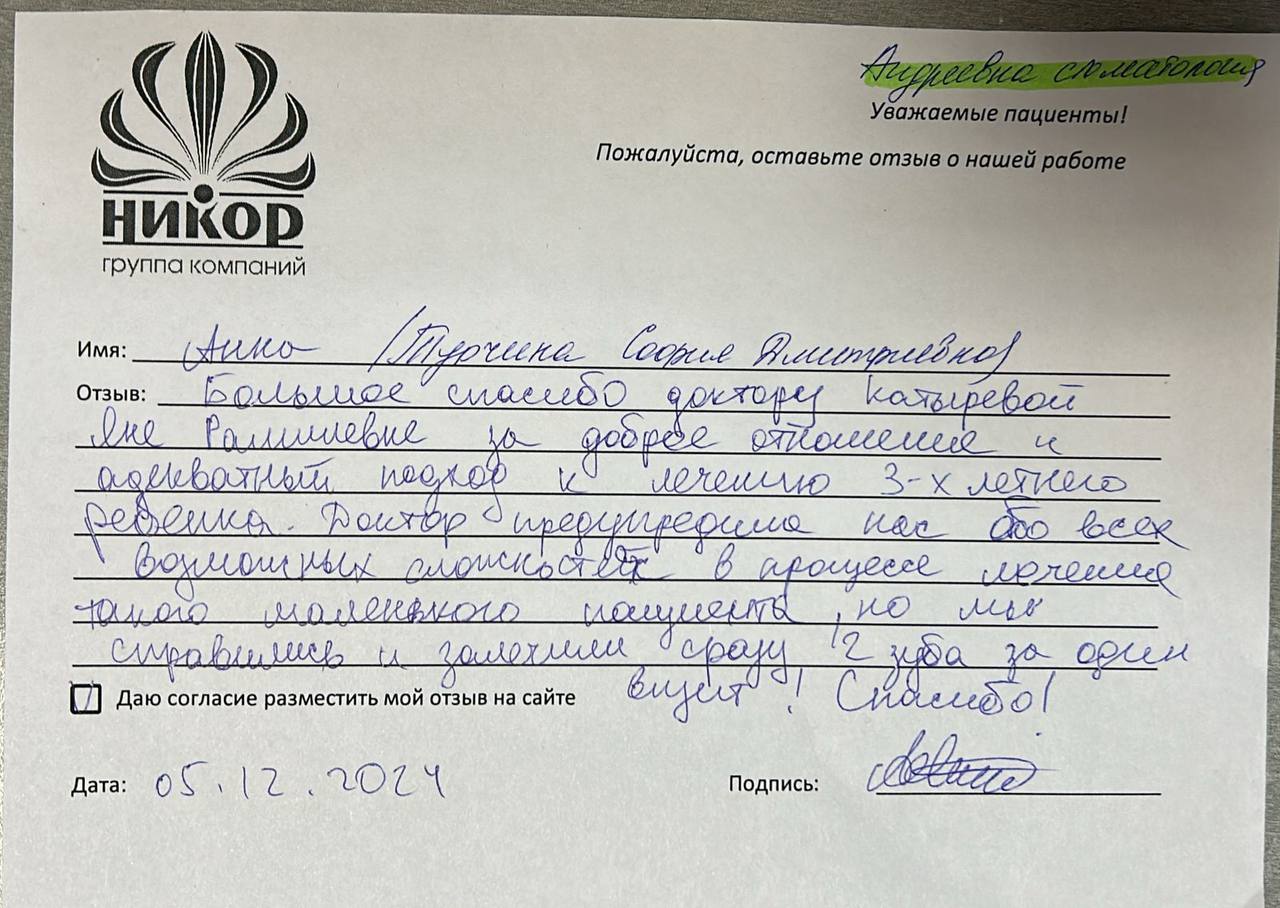 Андреевка стоматология
Уважаемые пациенты!
Пожалуйста, оставьте отзыв о нашей работе
НИКОР
группа компаний
Имя: Анна (Турчина София Дмитриевна)
Отзыв: Большое спасибо доктору Катыревой
Яне Рамилевне за доброе отношение и
адекватный подход к лечению 3-х летнего
ребенка. Доктор предупредила нас обо всех
возможных сложностях в процессе лечения
такого маленького пациента, но мы
справились и залечили сразу 2 зуба за один
визит! Спасибо!
Даю согласие разместить мой отзыв на сайте
Дата: 05.12.2024
Подпись: